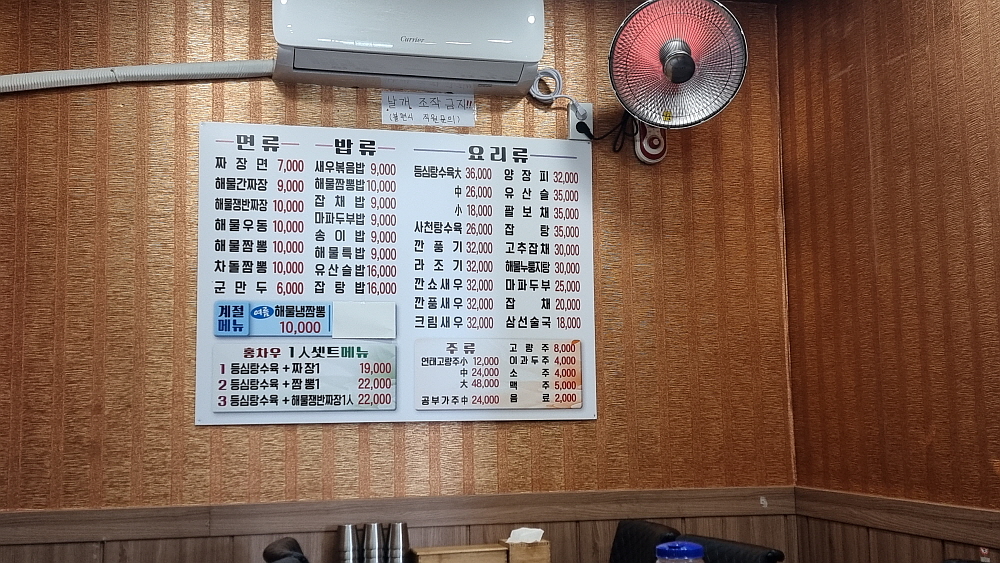 Carrier
날개 조작 금지!!
(불편시 직원문의)
면류
짜장면 7,000
해물간짜장 9,000
해물쟁반짜장 10,000
해물우동 10,000
해물짬뽕 10,000
차돌짬뽕 10,000
군만두 6,000
밥류
새우볶음밥 9,000
해물짬뽕밥 10,000
잡채밥 9,000
마파두부밥 9,000
송이밥 9,000
해물특밥 9,000
유산슬밥 16,000
잡탕밥 16,000
계절메뉴
여름 해물냉짬뽕
10,000
홍차우 1人셋트메뉴
1 등심탕수육+짜장1 19,000
2 등심탕수육+짬뽕1 22,000
3 등심탕수육+해물쟁반짜장1人 22,000
요리류
등심탕수육大 36,000
中 26,000
小 18,000
사천탕수육 26,000
깐풍기 32,000
라조기 32,000
깐쇼새우 32,000
깐풍새우 32,000
크림새우 32,000
양장피 32,000
유산슬 35,000
팔보채 35,000
잡탕 35,000
고추잡채 30,000
해물누룽지탕 30,000
마파두부 25,000
잡채 20,000
삼선술국 18,000
주류
연태고량주小 12,000
中 24,000
大 48,000
공부가주中 24,000
고량주 8,000
이과두주 4,000
소주 4,000
맥주 5,000
음료 2,000